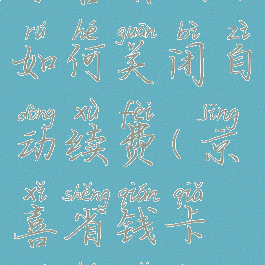 rú hé guān bì zì
如何关闭自
dòng xù fèi jīng
动续费(京
xǐ shěng qián qiǎ
喜省钱卡